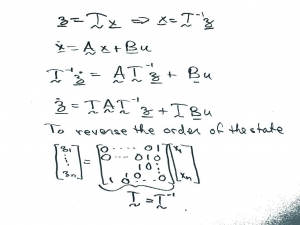 z = T x ⇒ x = T⁻¹ z
ẋ = A x + B u
T⁻¹ ż = A T⁻¹ z + B u
ż = T A T⁻¹ z + T B u
To reverse the order of the state
[z₁ ⋮ zₙ] = [0 ⋯ 0 1; 0 ⋯ 0 1 0; 1 0 0; 1 0 ⋯ 0] [x₁ ⋮ xₙ]
T = T⁻¹